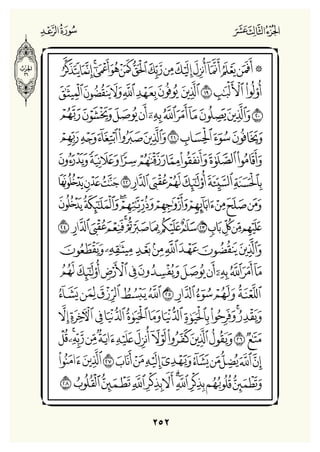 الجُزْءُ الثَّالِثَ عَشَرَ
سُورَةُ الرَّعْدِ
۞ أَفَمَن يَعْلَمُ أَنَّمَآ أُنزِلَ إِلَيْكَ مِن رَّبِّكَ ٱلْحَقُّ كَمَنْ هُوَ أَعْمَىٰٓ إِنَّمَا يَتَذَكَّرُ
أُو۟لُوا۟ ٱلْأَلْبَٰبِ ١٩ ٱلَّذِينَ يُوفُونَ بِعَهْدِ ٱللَّهِ وَلَا يَنقُضُونَ ٱلْمِيثَٰقَ
٢٠ وَٱلَّذِينَ يَصِلُونَ مَآ أَمَرَ ٱللَّهُ بِهِۦٓ أَن يُوصَلَ وَيَخْشَوْنَ رَبَّهُمْ
وَيَخَافُونَ سُوٓءَ ٱلْحِسَابِ ٢١ وَٱلَّذِينَ صَبَرُوا۟ ٱبْتِغَآءَ وَجْهِ رَبِّهِمْ
وَأَقَامُوا۟ ٱلصَّلَوٰةَ وَأَنفَقُوا۟ مِمَّا رَزَقْنَٰهُمْ سِرًّا وَعَلَانِيَةً وَيَدْرَءُونَ
بِٱلْحَسَنَةِ ٱلسَّيِّئَةَ أُو۟لَٰٓئِكَ لَهُمْ عُقْبَى ٱلدَّارِ ٢٢ جَنَّٰتُ عَدْنٍ يَدْخُلُونَهَا
وَمَن صَلَحَ مِنْ ءَابَآئِهِمْ وَأَزْوَٰجِهِمْ وَذُرِّيَّٰتِهِمْ وَٱلْمَلَٰٓئِكَةُ يَدْخُلُونَ
عَلَيْهِم مِّن كُلِّ بَابٍ ٢٣ سَلَٰمٌ عَلَيْكُم بِمَا صَبَرْتُمْ فَنِعْمَ عُقْبَى ٱلدَّارِ ٢٤
وَٱلَّذِينَ يَنقُضُونَ عَهْدَ ٱللَّهِ مِنۢ بَعْدِ مِيثَٰقِهِۦ وَيَقْطَعُونَ
مَآ أَمَرَ ٱللَّهُ بِهِۦٓ أَن يُوصَلَ وَيُفْسِدُونَ فِى ٱلْأَرْضِ أُو۟لَٰٓئِكَ لَهُمُ
ٱللَّعْنَةُ وَلَهُمْ سُوٓءُ ٱلدَّارِ ٢٥ ٱللَّهُ يَبْسُطُ ٱلرِّزْقَ لِمَن يَشَآءُ
وَيَقْدِرُ وَفَرِحُوا۟ بِٱلْحَيَوٰةِ ٱلدُّنْيَا وَمَا ٱلْحَيَوٰةُ ٱلدُّنْيَا فِى ٱلْءَاخِرَةِ إِلَّا
مَتَٰعٌ ٢٦ وَيَقُولُ ٱلَّذِينَ كَفَرُوا۟ لَوْلَآ أُنزِلَ عَلَيْهِ ءَايَةٌ مِّن رَّبِّهِۦ قُلْ
إِنَّ ٱللَّهَ يُضِلُّ مَن يَشَآءُ وَيَهْدِىٓ إِلَيْهِ مَنْ أَنَابَ ٢٧ ٱلَّذِينَ ءَامَنُوا۟
وَتَطْمَئِنُّ قُلُوبُهُم بِذِكْرِ ٱللَّهِ أَلَا بِذِكْرِ ٱللَّهِ تَطْمَئِنُّ ٱلْقُلُوبُ ٢٨
٢٥٢